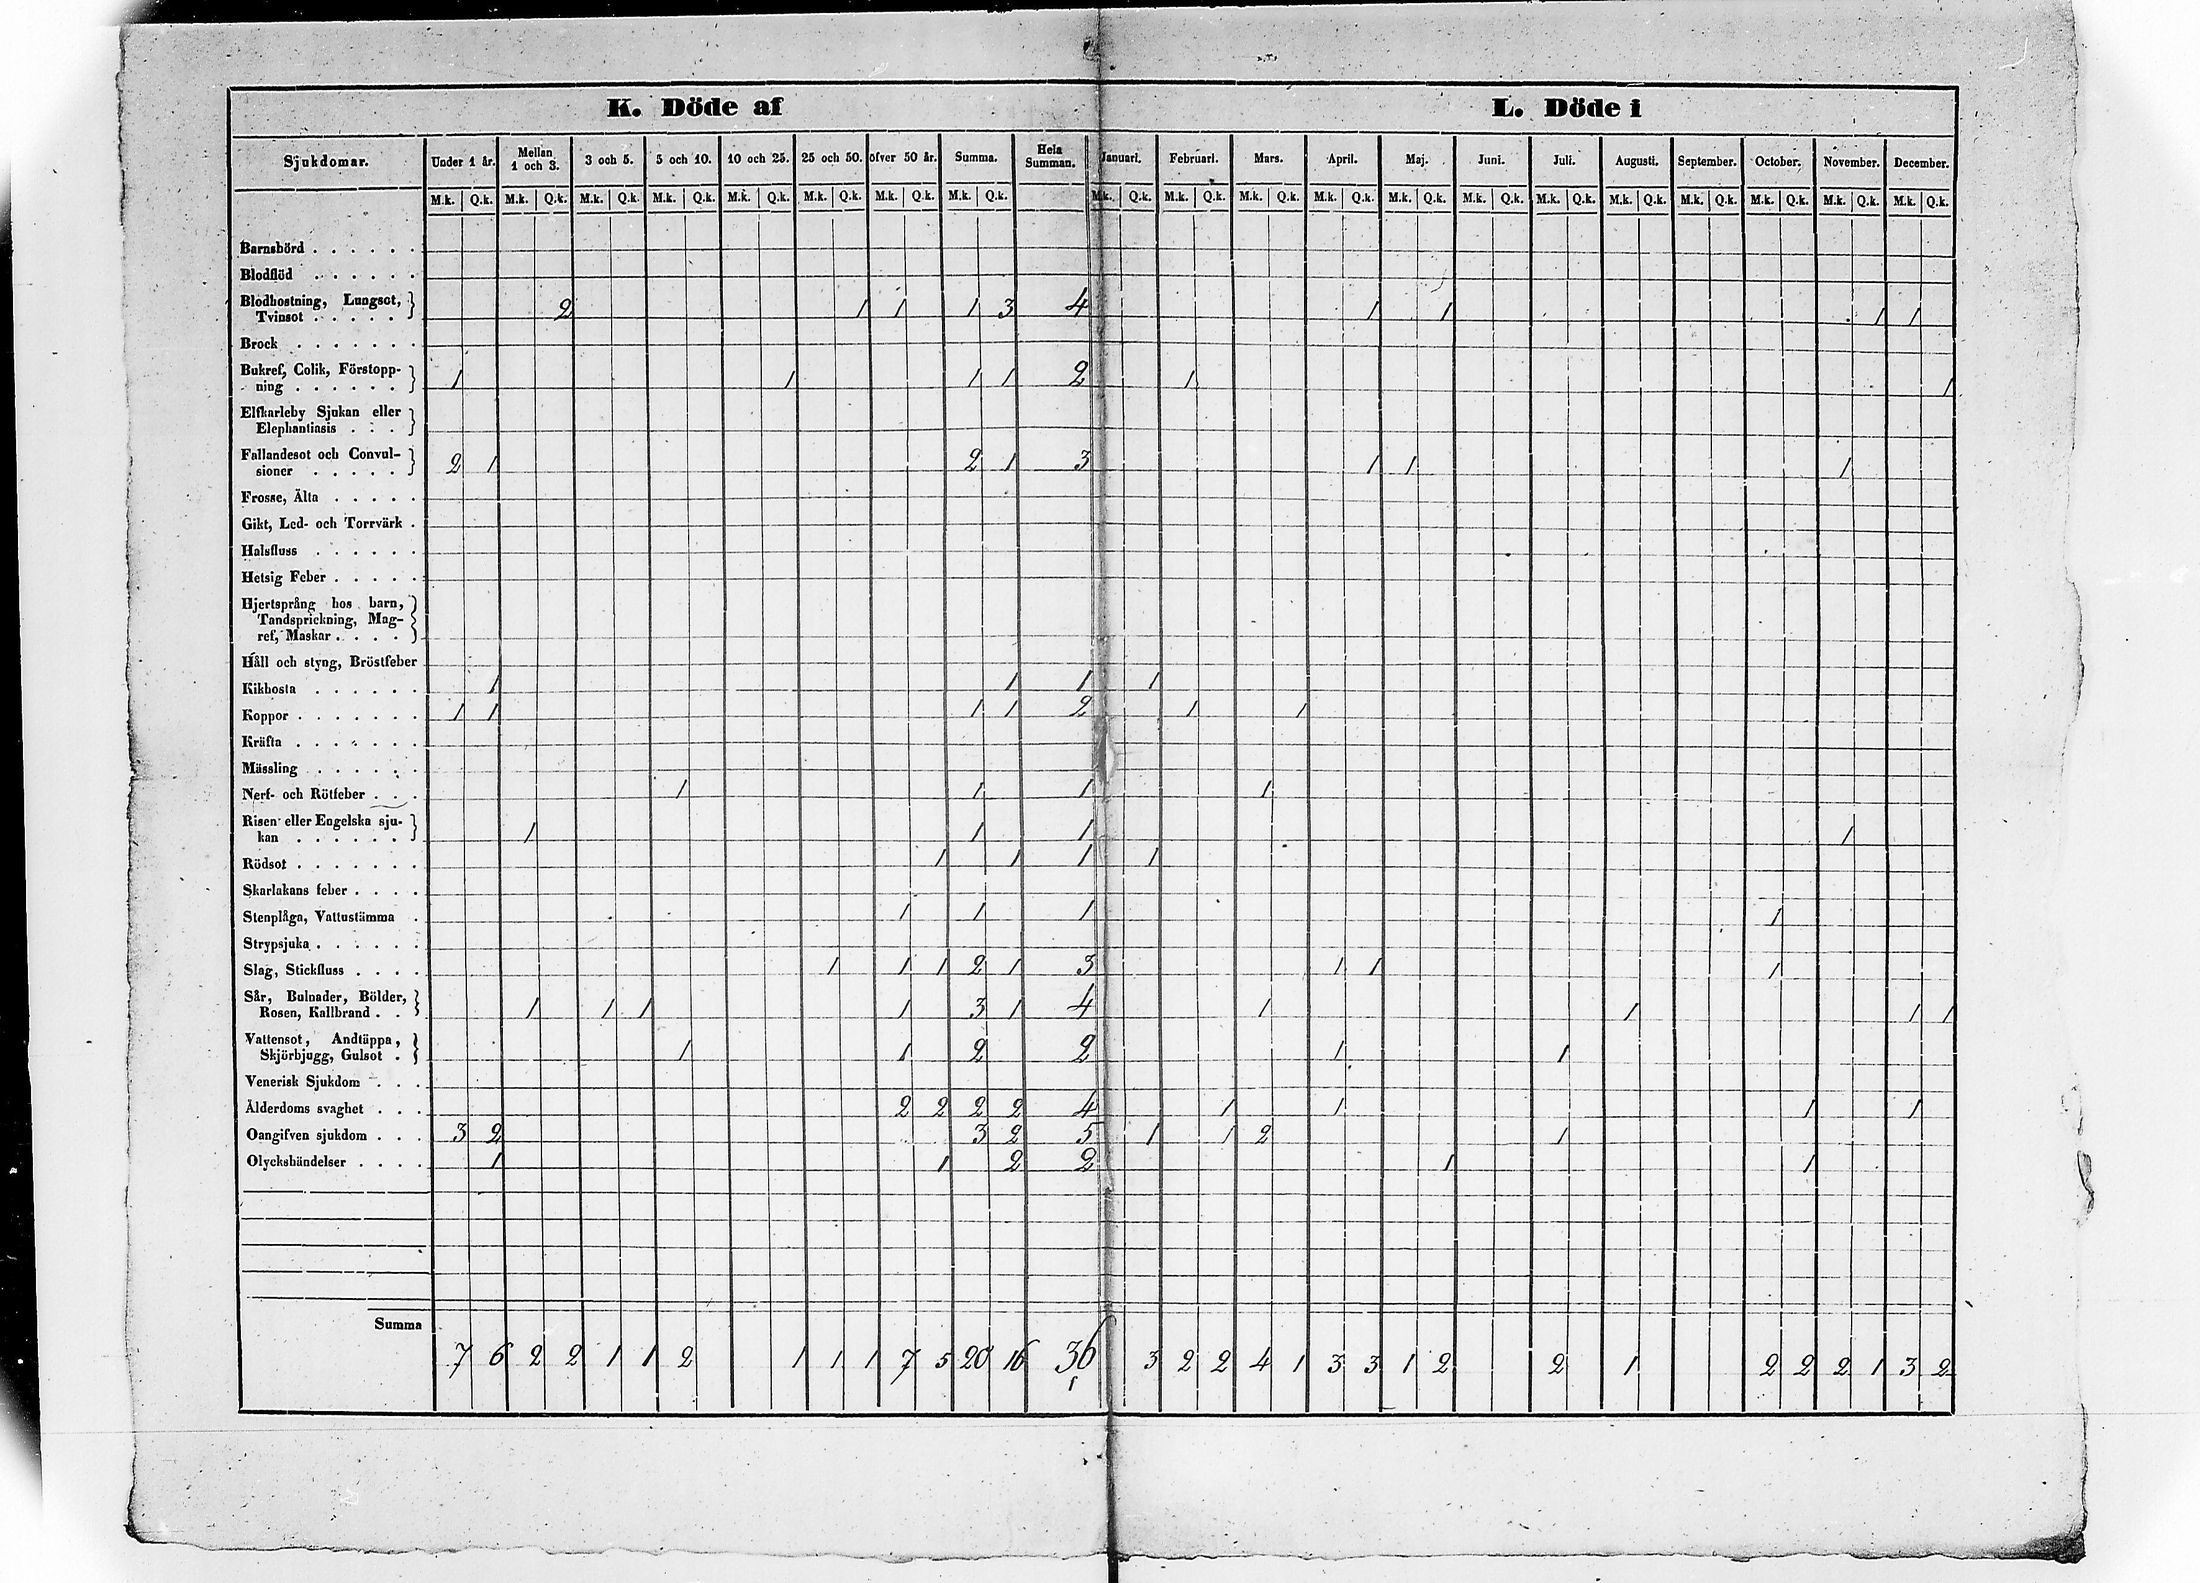 K. Döde af L. Döde i
Sjukdomar. Under 1 år. Mellan 1 och 3. 3 och 5. 5 och 10. 10 och 25. 25 och 50. öfver 50 år. Summa. Hela Summan. Januari. Februari. Mars. April. Maj. Juni. Juli. Augusti. September. October. November. December.
M.k. Q.k. M.k. Q.k. M.k. Q.k. M.k. Q.k. M.k. Q.k. M.k. Q.k. M.k. Q.k. M.k. Q.k. M.k. Q.k. M.k. Q.k. M.k. Q.k. M.k. Q.k. M.k. Q.k. M.k. Q.k. M.k. Q.k. M.k. Q.k. M.k. Q.k. M.k. Q.k. M.k. Q.k. M.k. Q.k.
Barnsbörd . . . . . .
Blodflöd . . . . . .
Blodhostning, Lungsot,
Tvinsot . . . . . 2 1 1 1 3 4 1 1 1 1
Brock . . . . . . .
Bukref, Colik, Förstopp-
ning . . . . . . 1 1 1 1 2 1 1
Elfkarleby Sjukan eller
Elephantiasis . . .
Fallandesot och Convul-
sioner . . . . . 2 1 2 1 3 1 1 1
Frosse, Älta . . . . .
Gikt, Led- och Torrvärk .
Halsfluss . . . . . .
Hetsig Feber . . . . .
Hjertsprång hos barn,
Tandsprickning, Mag-
ref, Maskar . . . .
Håll och styng, Bröstfeber
Kikhosta . . . . . . 1 1 1 1
Koppor . . . . . . . 1 1 1 1 2 1 1
Kräfta . . . . . . .
Mässling . . . . . .
Nerf- och Rötfeber . . . 1 1 1 1
Risen eller Engelska sju-
kan . . . . . . 1 1 1 1
Rödsot . . . . . . . 1 1 1 1
Skarlakans feber . . . .
Stenplåga, Vattustämma . 1 1 1 1
Strypsjuka . . . . . .
Slag, Stickfluss . . . . 1 1 1 2 1 3 1 1 1
Sår, Bulnader, Bölder,
Rosen, Kallbrand . . 1 1 1 1 3 1 4 1 1 1 1
Vattensot, Andtäppa,
Skjörbjugg, Gulsot . 1 1 2 2 1 1
Venerisk Sjukdom . . .
Ålderdoms svaghet . . . 2 2 2 2 4 1 1 1 1
Oangifven sjukdom . . . 3 2 3 2 5 1 1 2 1
Olyckshändelser . . . . 1 1 2 2 1 1
Summa
7 6 2 2 1 1 2 1 1 1 7 5 20 16 36 3 2 2 4 1 3 3 1 2 2 1 2 2 2 1 3 2